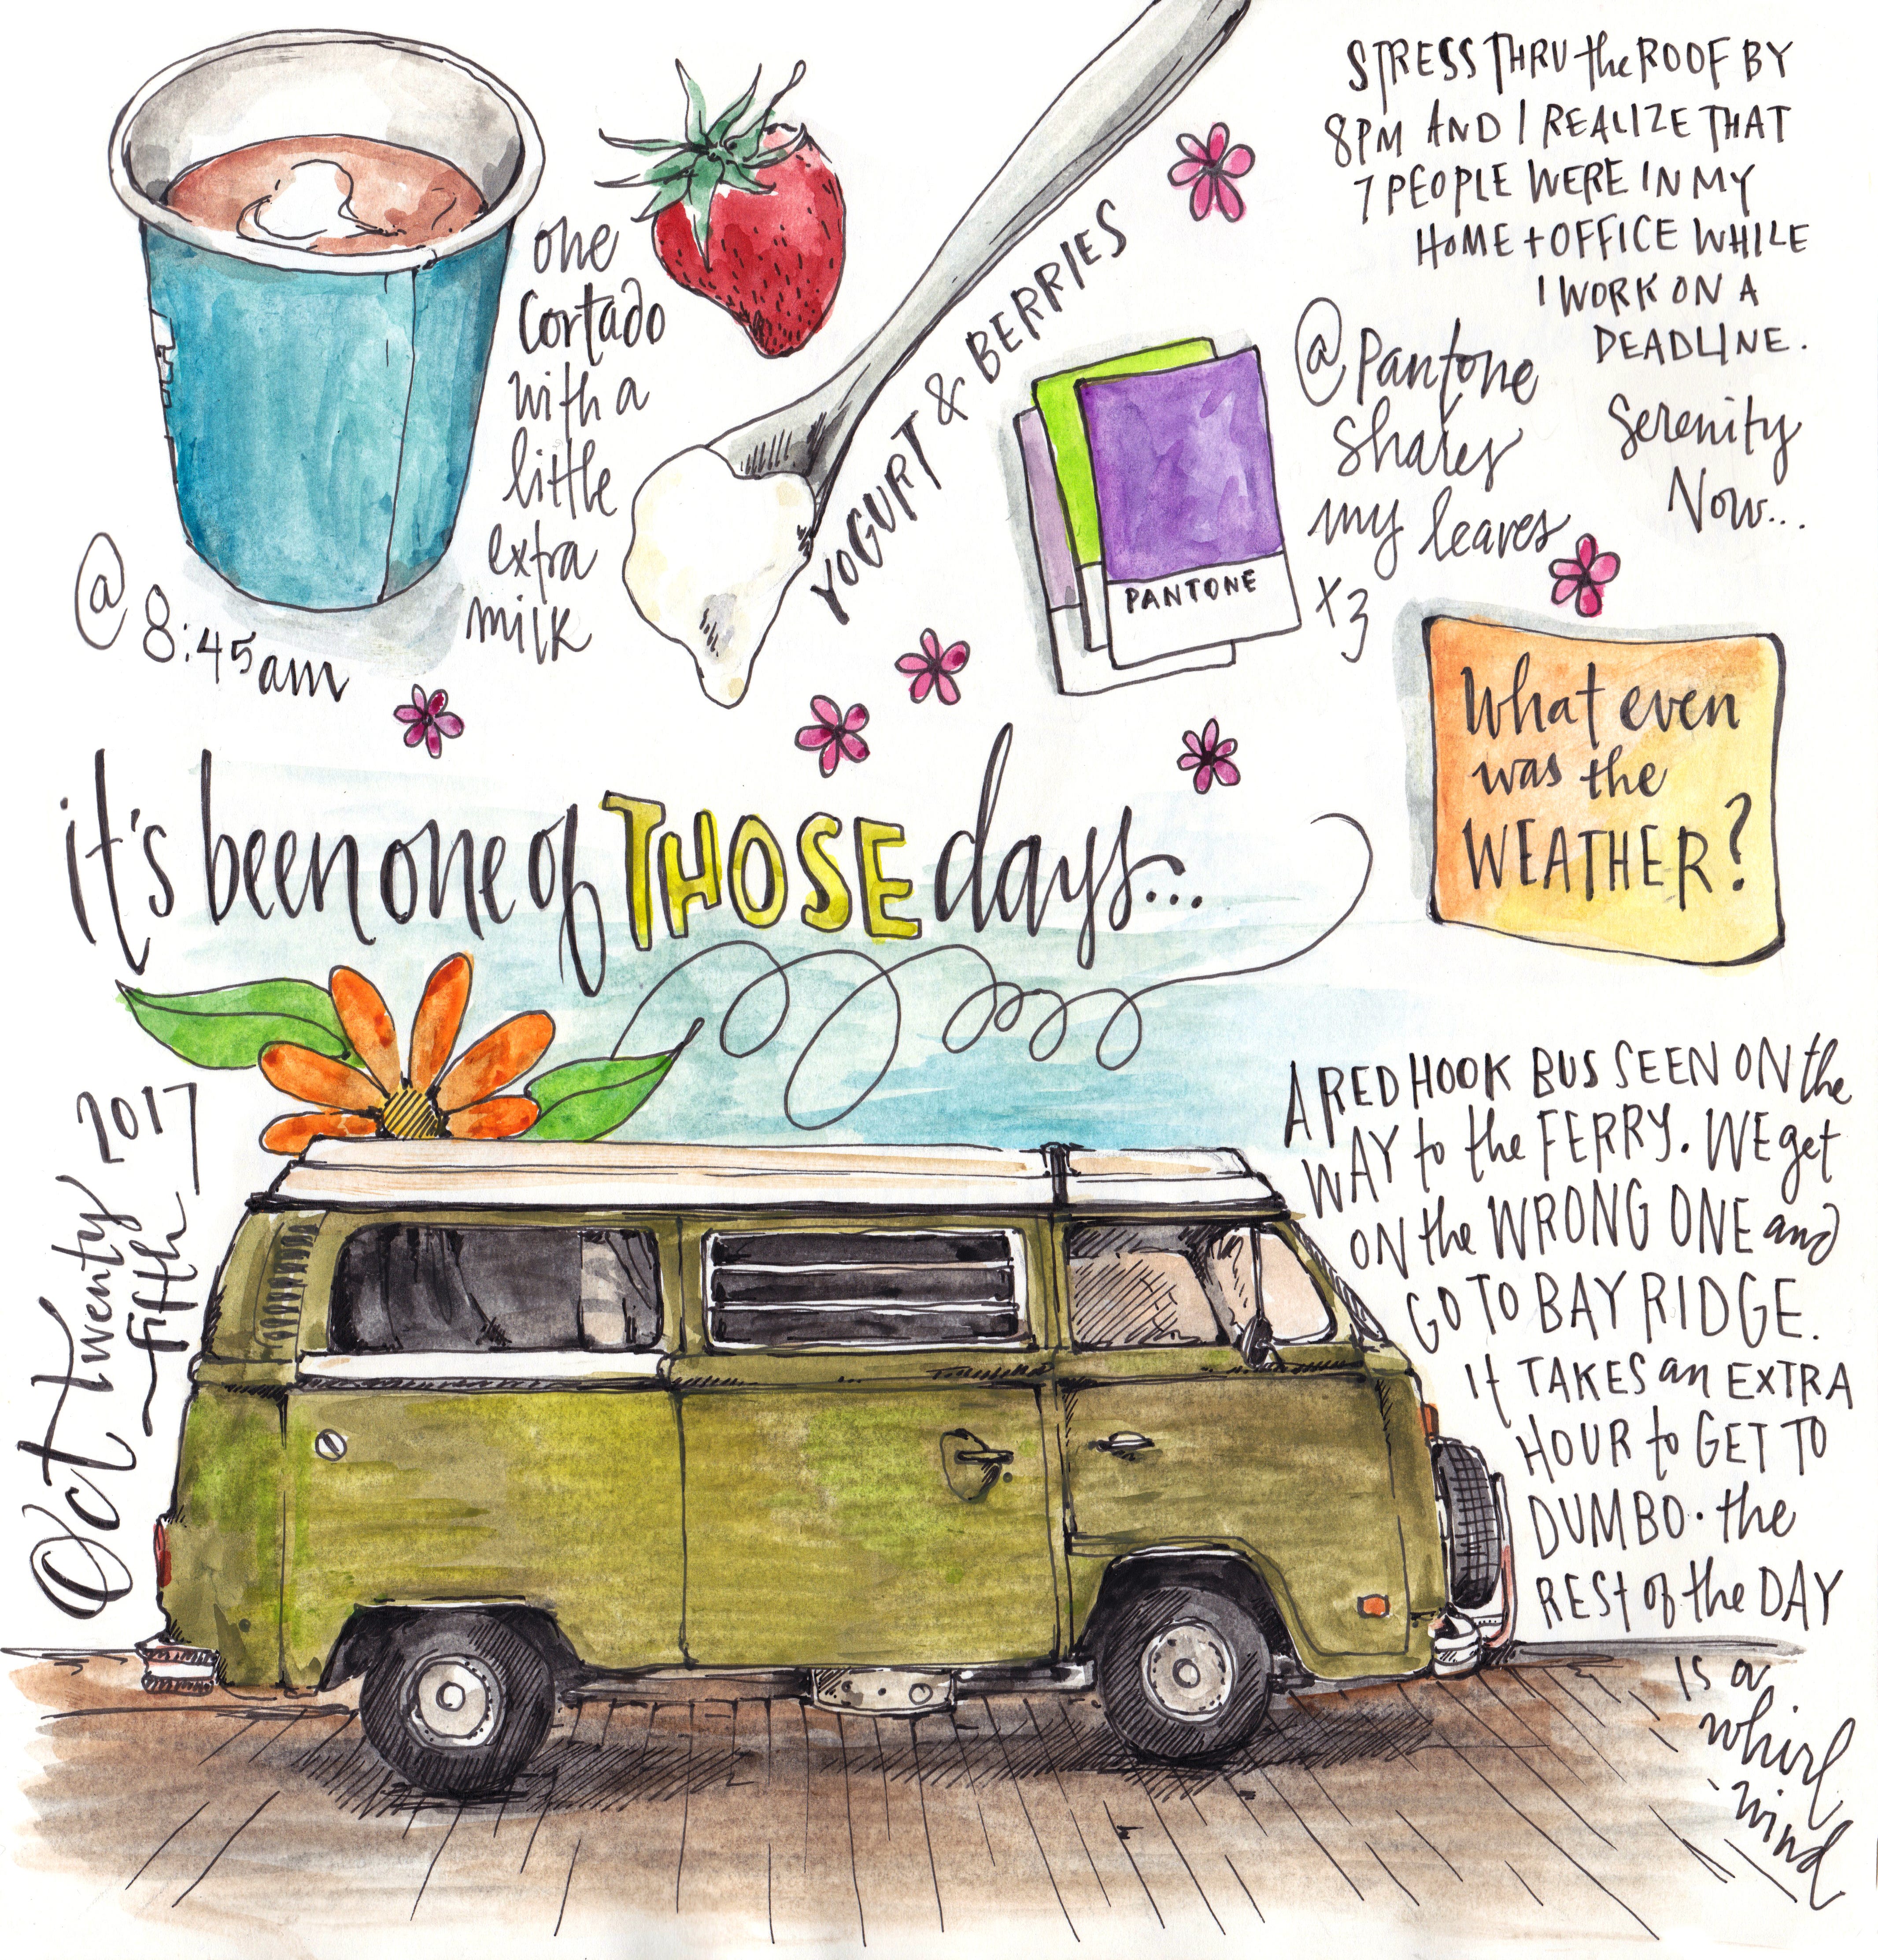 one
Cortado
with a
little
extra
milk
@ 8:45am
YOGURT & BERRIES
STRESS THRU the ROOF BY
8PM AND I REALIZE THAT
7 PEOPLE WERE IN MY
HOME + OFFICE WHILE
I WORK ON A
DEADLINE.
Serenity
Now...
@Pantone
shares
my leaves
x3
PANTONE
What even
was the
WEATHER?
it's been one of THOSE days...
Oct twenty
fifth
2017
A RED HOOK BUS SEEN ON the
WAY to the FERRY. WE get
ON the WRONG ONE and
GO TO BAY RIDGE.
It TAKES an EXTRA
HOUR to GET TO
DUMBO. the
REST of the DAY
is a
whirl
wind